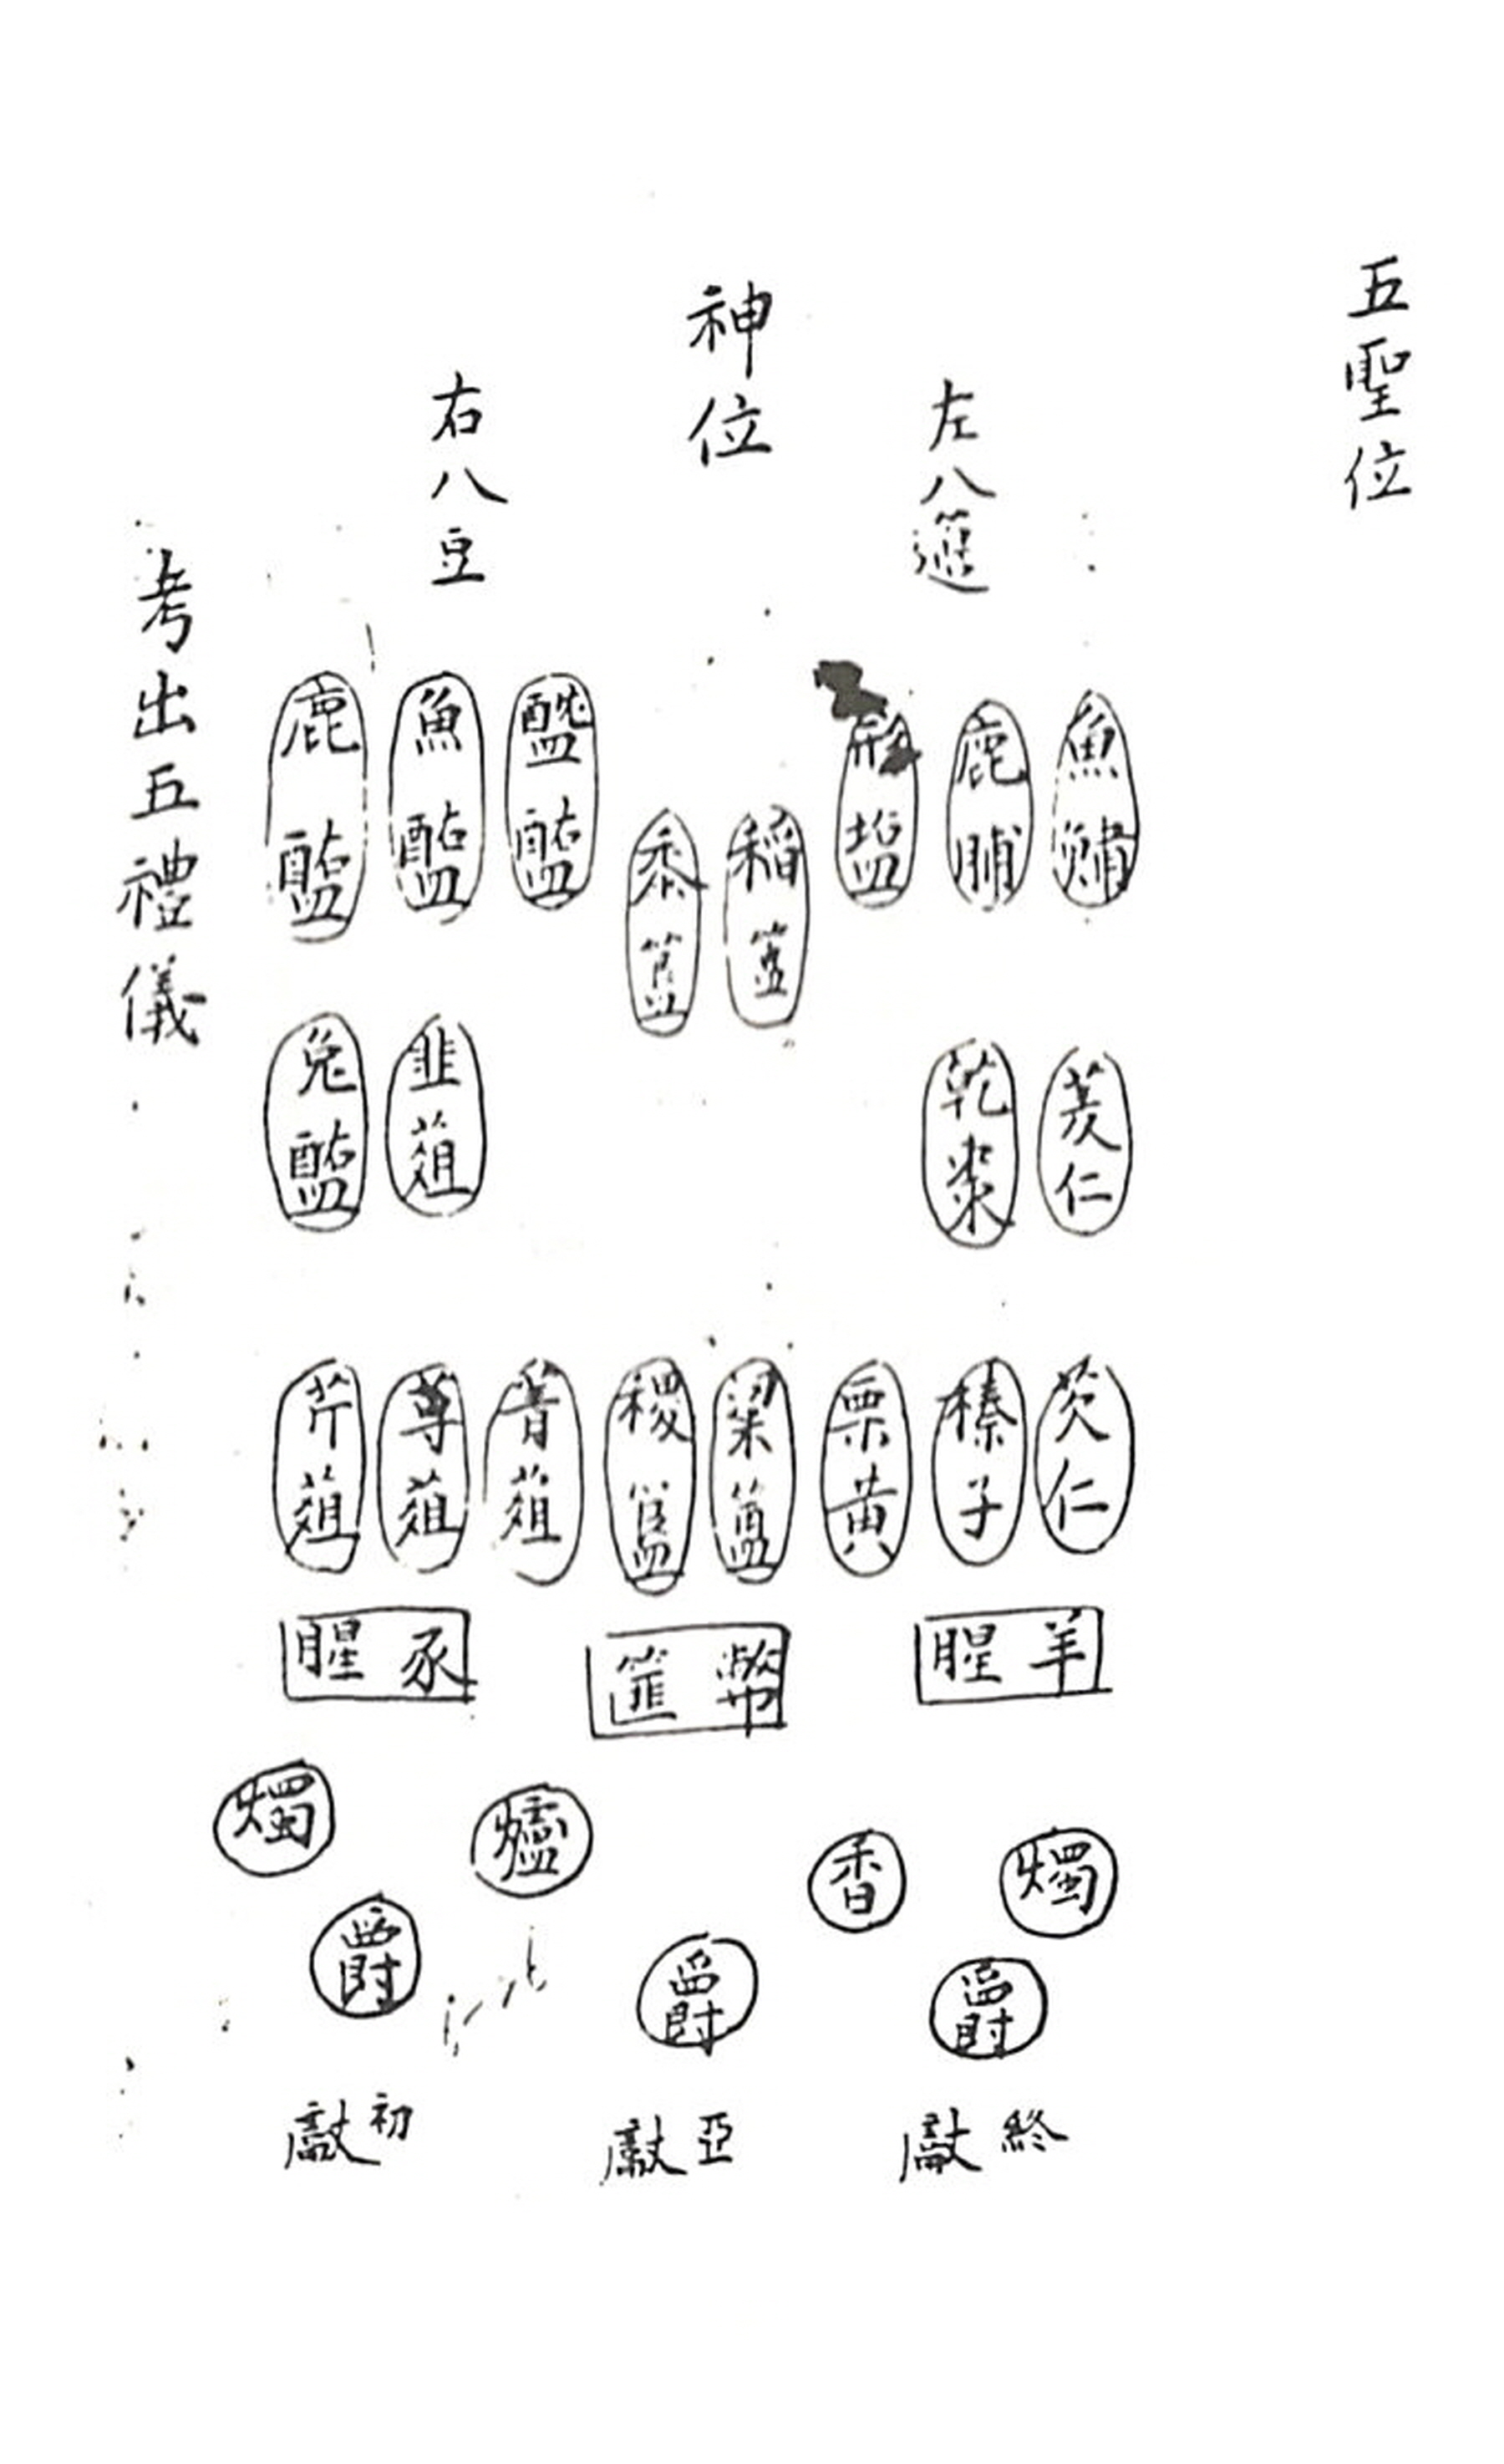 五聖位
神位
左八籩
右八豆
魚鱐
鹿脯
形塩
稻簠
黍簋
醓醢
魚醢
鹿醢
菱仁
乾棗
韭菹
兔醢
芡仁
榛子
栗黄
粱簠
稷簋
菁菹
芹菹
羊腥
幣篚
豕腥
燭
香
爐
燭
爵
爵
爵
終獻
亞獻
初獻
考出五禮儀